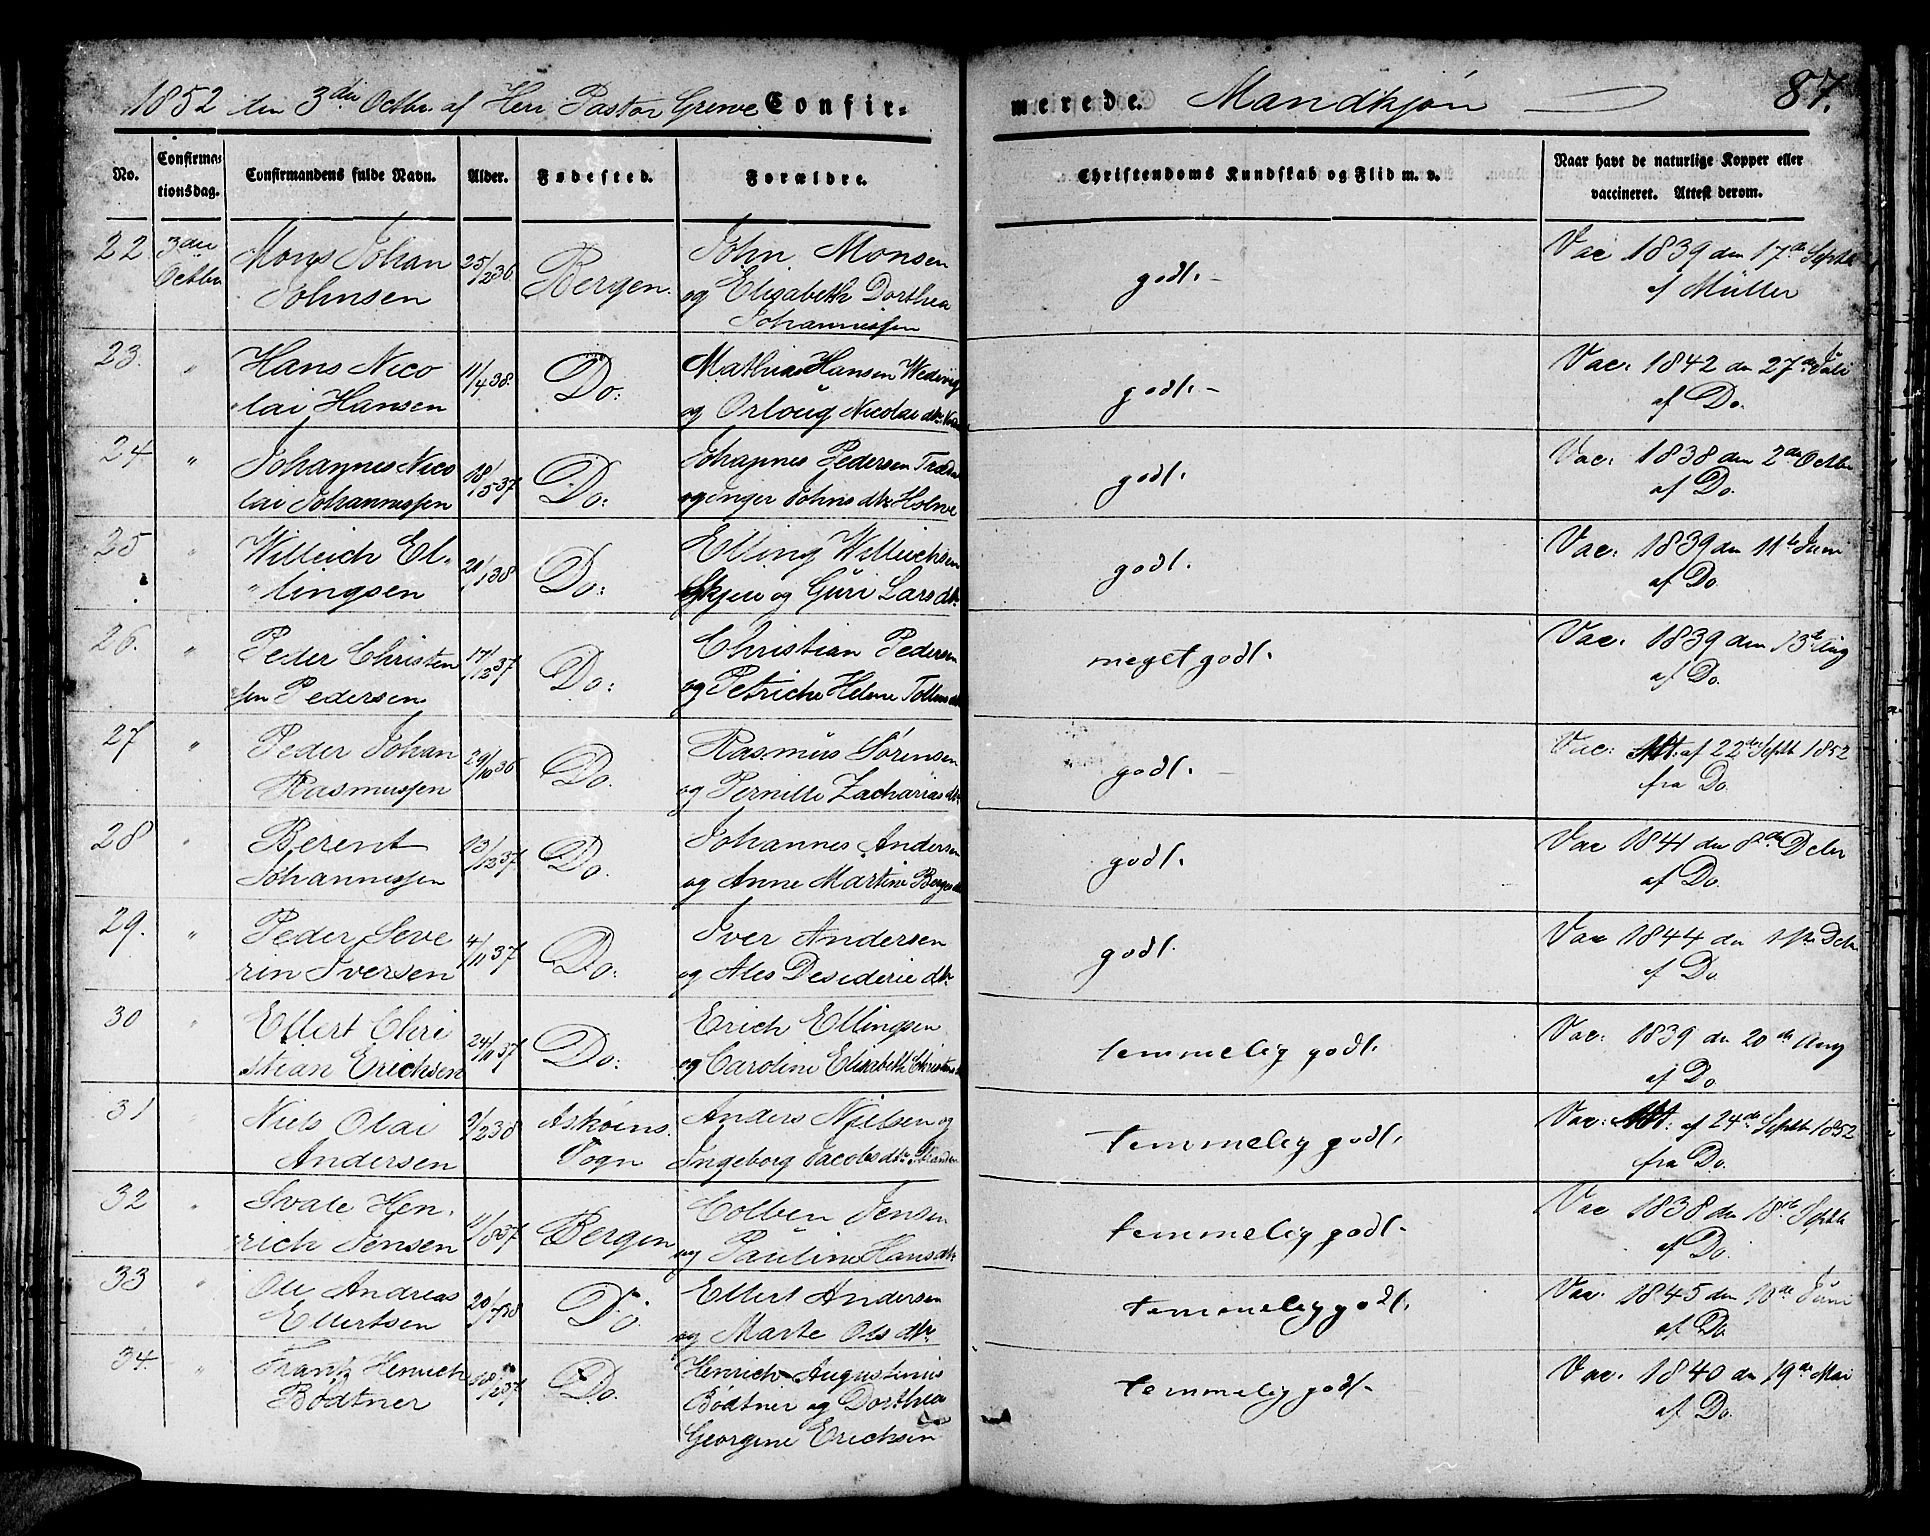 1852 den 3die Octbr af Herr Pastor Greve Confir-
merede. Mandkjøn 87.
No. Confirmationsdag. Confirmandens fulde Navn. Alder. Fødested. Forældre. Christendoms Kundskab og Flid m. v. Naar havt de naturlige Kopper eller vaccineret. Attest derom.
22 3die Mons Johan 25/2 36 Bergen. John Monsen godt. Vac 1839 den 17de Septbr
Octbr Johnsen og Elisabeth Dorthea af Müller
Johannessen
23. " Hans Nico 11/4 38. Do: Mathias Hansen godt. Vac: 1842 den 27de Juli
lai Hansen og Nicolai dtr. af Do.
24 " Johannes Nico 18/5 37 Do: Johannes Pedersen godt. Vac: 1838 den 2den Octbr
lai Johannessen og Inger Johns dtr. af Do.
25 " Willeich El- 21/1 38 Do: Elling Willeichsen godt. Vac: 1839 den 11te Juni
lingsen og Guri Lars dtr. af Do.
26. " Peder Christen 17/12 37 Do: Christian Pedersen meget godt. Vac: 1839 den 13de Aug
sen Pedersen og Helene af Do.
27 " Peder Johan 29/10 36 Do. Rasmus Sørensen godt. Vac: Att: af 22de Septb 1852
Rasmussen og Pernille Zacharias dtr. fra Do.
28 " Berent 23/12 37 Do. Johannes Andersen godt. Vac 1841 den 8de Dcbr
Johannessen og Anne Martine af Do.
29. " Peder Seve 4/11 37 Do: Iver Andersen godt. Vac 1844 den Dcbr
rin Iversen og Ales Desiderie dtr. af Do.
30 " Ellert Chri 24/11 37 Do: Erich Ellingsen temmelig godt. Vac: 1839 den 20de Aug
stian Erichsen og Caroline Elisabeth af Do
31 " Niels Olai 9/2 38 Askøens Anders Njelsen og temmelig godt. Vac: Att: af 24de Septb 1852
Andersen Sogn Ingeborg Jacobs dtr. fra Do.
32 " Svale Hen- 11/8 37 Bergen Colben Jensen temmelig godt. Vac 1838 den 18de Septb
rich Jensen og Pauline Hans dtr. af Do.
33 " Ole Andreas 20/1 38 Do Ellert Andersen temmelig godt. Vac. 1845 den 10de Juni
Ellertsen og Marte Ols dtr. af Do
34 " Frantz Henrich 37 Do. Henrich Augustinus temmelig godt. Vac. 1840 den 19de Mai
Bødtner Bødtner og Dorthea af Do.
Georgine Erichsen